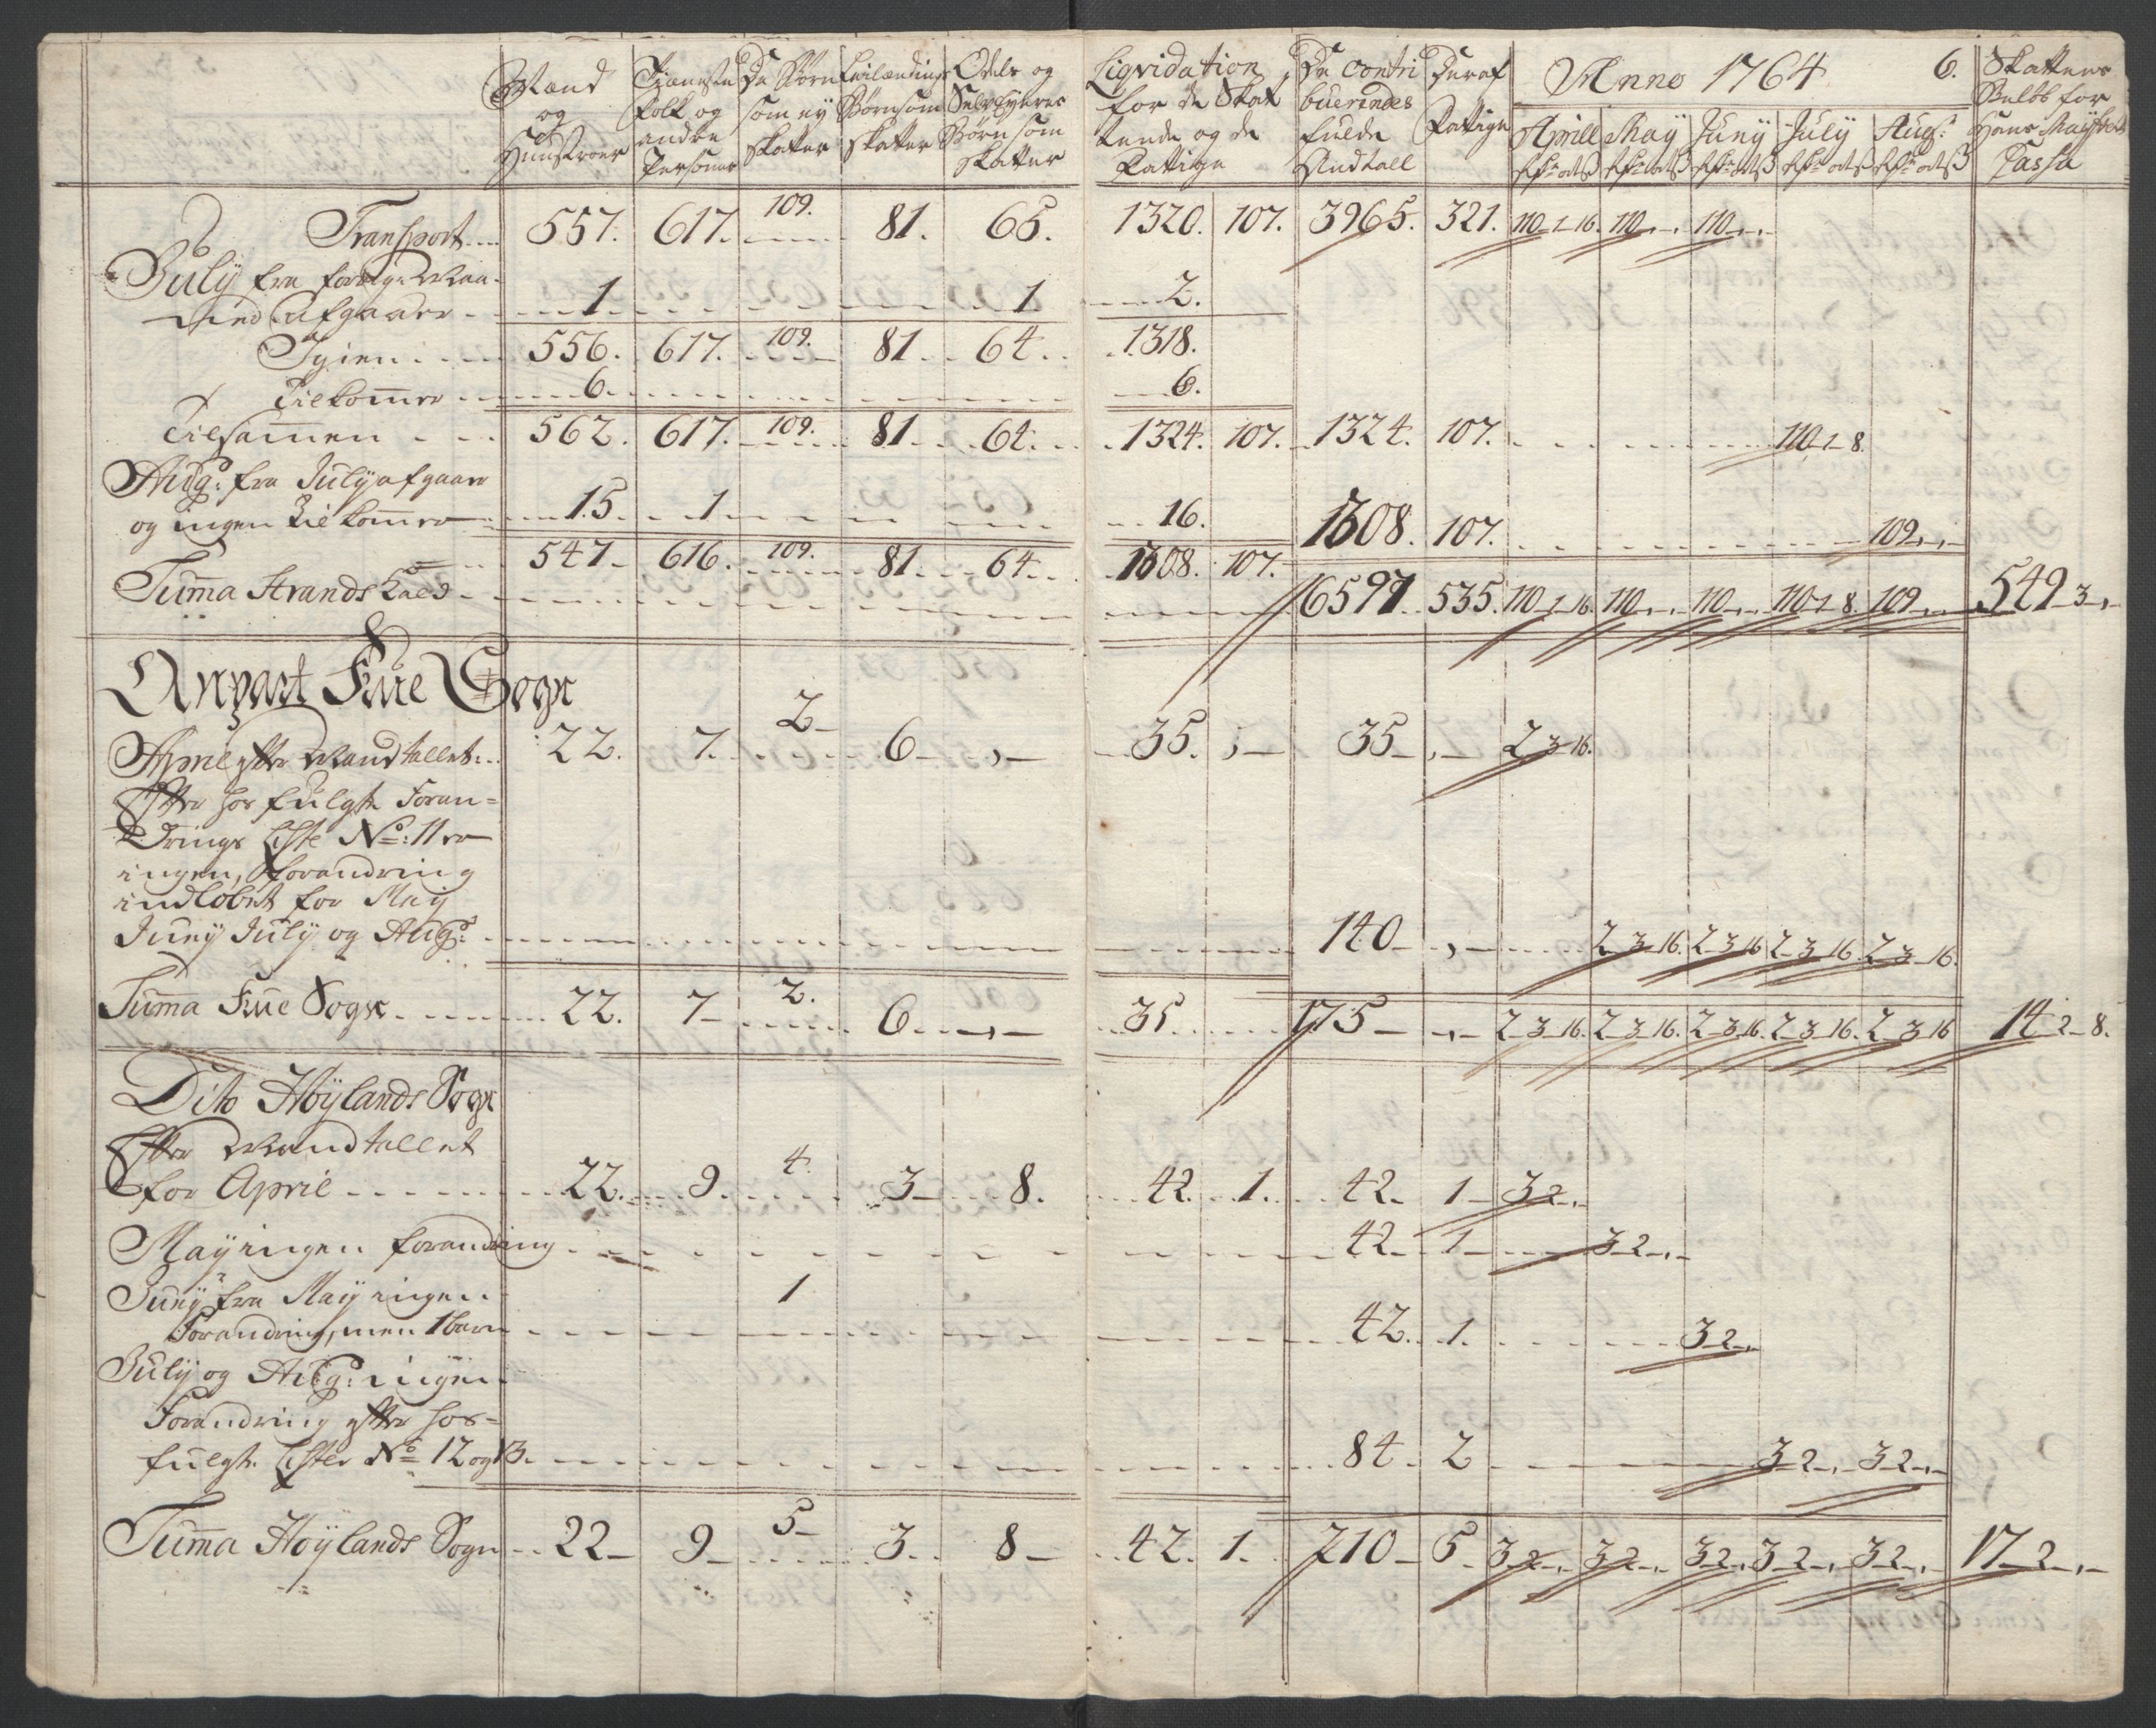 Mænd og Hustroer | Tienneste folk og andre Personer | De Børn som ey skatter | Leilændings Børn som skatter | Odels og Selveyeres Børn som skatter | Liqvidation for de Skattende og de Fattige | De contribuerendes fulde Andtall | Deraf Fattige | Anno 1764 | 6. | Skattens Beløb for Hans Mayst: Cassa
Aprill | May | Juny | July | Aug:
Transport 557. 617. 109. 81. 65. 1320. 107. 3965. 321. 110-1-16. 110 110
July fra forrige Maa-
ned afgaaer 1 1 2.
Igien 556. 617. 109. 81 64 1318.
Tilkommer 6. 6.
Tilsammen 562. 617. 109. 81 64 1324. 107. 1324. 107. 110-1-8.
Aug: fra July afgaaer
og ingen Tilkommer 15. 1 16. 1308. 107. 109
547 616. 109. 81 64 1308. 107.
Summa Strands Læd 6597 535. 110-1-16. 110 110 110-1-8. 109 549-3
Anpart Fuue Sogn
April efter Mandtallet 22. 7. 2 6 35. 35 2-3-16.
Efter hos fulgte Foran=
drings Liste No: 11 er
ingen forandring
indløbet for May
Juny July og Aug: 140 2-3-16. 2-3-16 2-3-16. 2-3-16.
Summa Fuue Sogn 22. 7 2. 6 35 175 2-3-16. 2-3-16. 2-3-16. 2-3-16. 2-3-16 14-2-8.
Dito Høylands Sogn
Efter Mandtallet
for April 22. 9. 4. 3 8. 42. 1. 42. 1 3-2
May ingen forandring 42 1 3-2
Juny fra May ingen 1
Forandring, men 1 barn 42. 1. 3-2
July og Aug: ingen
Forandring efter hos=
fulgte Lister No 12 og 13. 84. 2 3-2 3-2
Summa Høylands Sogn 22 9 5 3. 8 42. 1. 210 5. 3-2 3-2 3-2 3-2 3-2 17-2